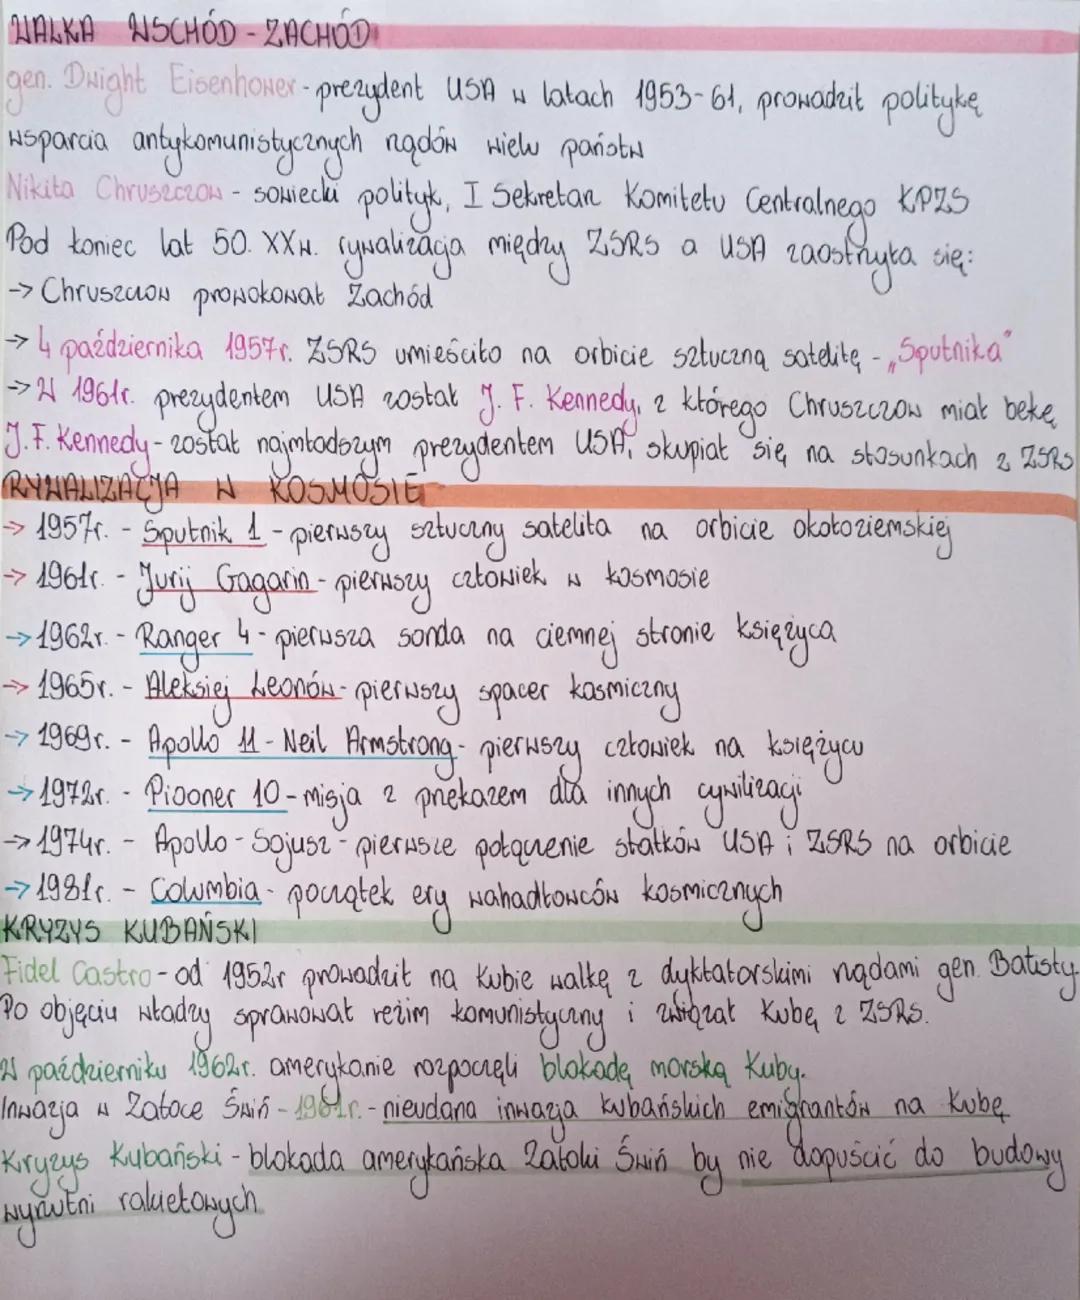 WALKA WSCHÓD - ZACHÓD
gen. Dwight Eisenhower - prezydent USA w latach 1953-61, prowadził politykę
wsparcia antykomunistycznych rządów wielu państw
Nikita Chruszczow - sowiecki polityk, I Sekretarz Komitetu Centralnego KPZS
Pod koniec lat 50. XXw. rywalizacja między ZSRS a USA zaostrzyła się:
-> Chruszczow prowokował Zachód
-> 4 października 1957r. ZSRS umieściło na orbicie sztuczną satelitę - „Sputnika"
-> W 1961r. prezydentem USA został J. F. Kennedy, z którego Chruszczow miał bekę
J. F. Kennedy - został najmłodszym prezydentem USA, skupiał się na stosunkach z ZSRS
RYWALIZACJA W KOSMOSIE
-> 1957r. - Sputnik 1 - pierwszy sztuczny satelita na orbicie okołoziemskiej
-> 1961r. - Jurij Gagarin - pierwszy człowiek w kosmosie
-> 1962r. - Ranger 4 - pierwsza sonda na ciemnej stronie księżyca
-> 1965r. - Aleksiej Leonów - pierwszy spacer kosmiczny
-> 1969r. - Apollo 11 - Neil Armstrong - pierwszy człowiek na księżycu
-> 1972r. - Piooner 10 - misja z przekazem dla innych cywilizacji
-> 1974r. - Apollo - Sojusz - pierwsze połączenie statków USA i ZSRS na orbicie
-> 1981r. - Columbia - początek ery wahadłowców kosmicznych
KRYZYS KUBAŃSKI
Fidel Castro - od 1952r prowadził na Kubie walkę z dyktatorskimi rządami gen. Batisty.
Po objęciu władzy sprawował reżim komunistyczny i związał Kubę z ZSRS.
W październiku 1962r. amerykanie rozpoczęli blokadę morską Kuby.
Inwazja w Zatoce Świń - 1961r. - nieudana inwazja kubańskich emigrantów na Kubę
Kryzys Kubański - blokada amerykańska Zatoki Świń by nie dopuścić do budowy
wyrzutni rakietowych